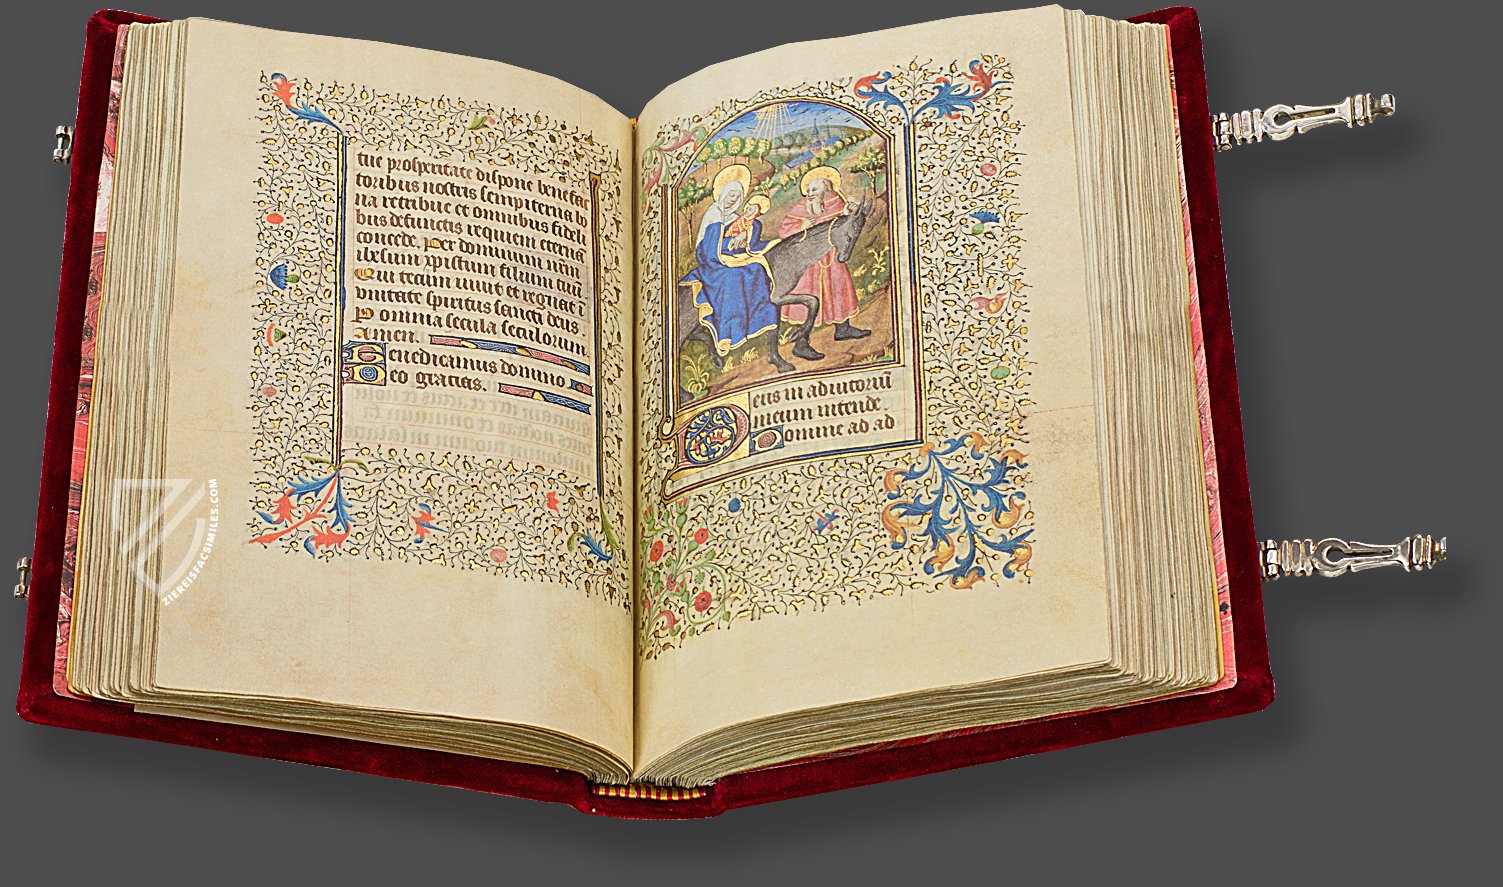 tue prosperitate dispone benefac
toribus nostris sempiterna bo
na retribue et omnibus fideli
bus defunctis requiem eterna
concede. Per dominum nrm
ihesum xpistum filium tuu.
Qui tecum vivit et regnat i
unitate spiritus sancti deus.
P omnia secula seculorum
Amen.
Benedicamus domino
Deo gracias.
Deus in adiutoriu
meum intende.
Domine ad ad
ZIEREISFACSIMILES.COM